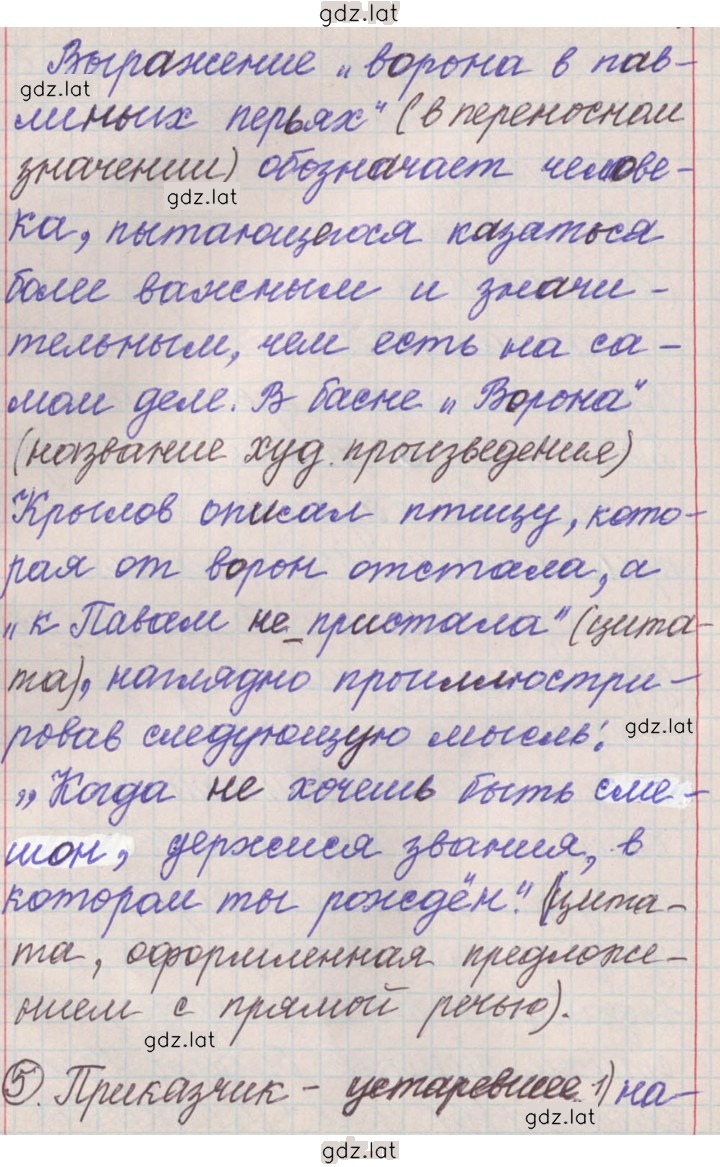 gdz.lat
Выражение „ворона в пав-
gdz.lat
линьих перьях“ (в переносном
значении) обозначает челове-
gdz.lat
ка, пытающегося казаться
более важным и значи-
тельным, чем есть на са-
мом деле. В басне „Ворона“
(название худ. произведения)
Крылов описал птицу, кото-
рая от ворон отстала, а
„к Павам не пристала“ (цита-
та), наглядно проиллюстри-
ровав следующую мысль:
gdz.lat
„Когда не хочешь быть сме-
шон, держися звания, в
котором ты рождён“. (цита-
та, оформленная предложе-
нием с прямой речью).
gdz.lat
5. Приказчик – устаревшее 1) на-
gdz.lat
gdz.lat